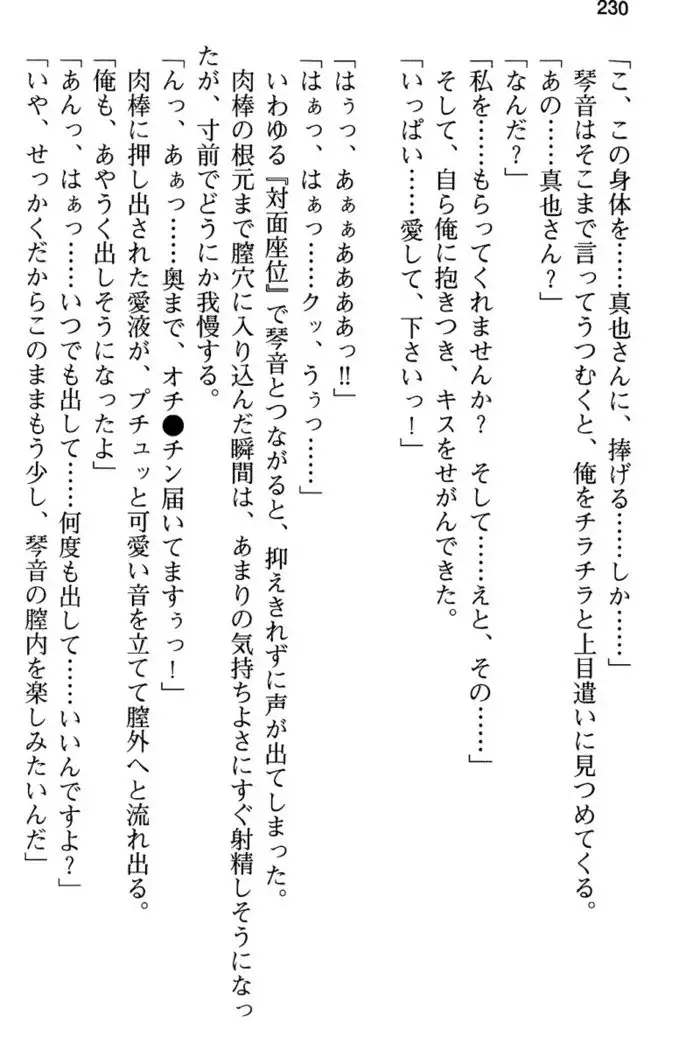 230
「こ、この身体を……真也さんに、捧げる……しか……」
琴音はそこまで言ってうつむくと、俺をチラチラと上目遣いに見つめてくる。
「あの……真也さん?」
「なんだ?」
「私を……もらってくれませんか? そして……えと、その……」
そして、自ら俺に抱きつき、キスをせがんできた。
「いっぱい……愛して、下さいっ!」
「はぅっ、あぁぁああああっ!!」
「はぁっ、はぁっ……クッ、うぅっ……」
いわゆる『対面座位』で琴音とつながると、抑えきれずに声が出てしまった。
肉棒の根元まで膣穴に入り込んだ瞬間は、あまりの気持ちよさにすぐ射精しそうになっ
たが、寸前でどうにか我慢する。
「んっ、あぁっ……奥まで、オチ●チン届いてますぅっ!」
肉棒に押し出された愛液が、プチュッと可愛い音を立てて膣外へと流れ出る。
「俺も、あやうく出しそうになったよ」
「あんっ、はぁっ……いつでも出して……何度も出して……いいんですよ?」
「いや、せっかくだからこのままもう少し、琴音の膣内を楽しみたいんだ」